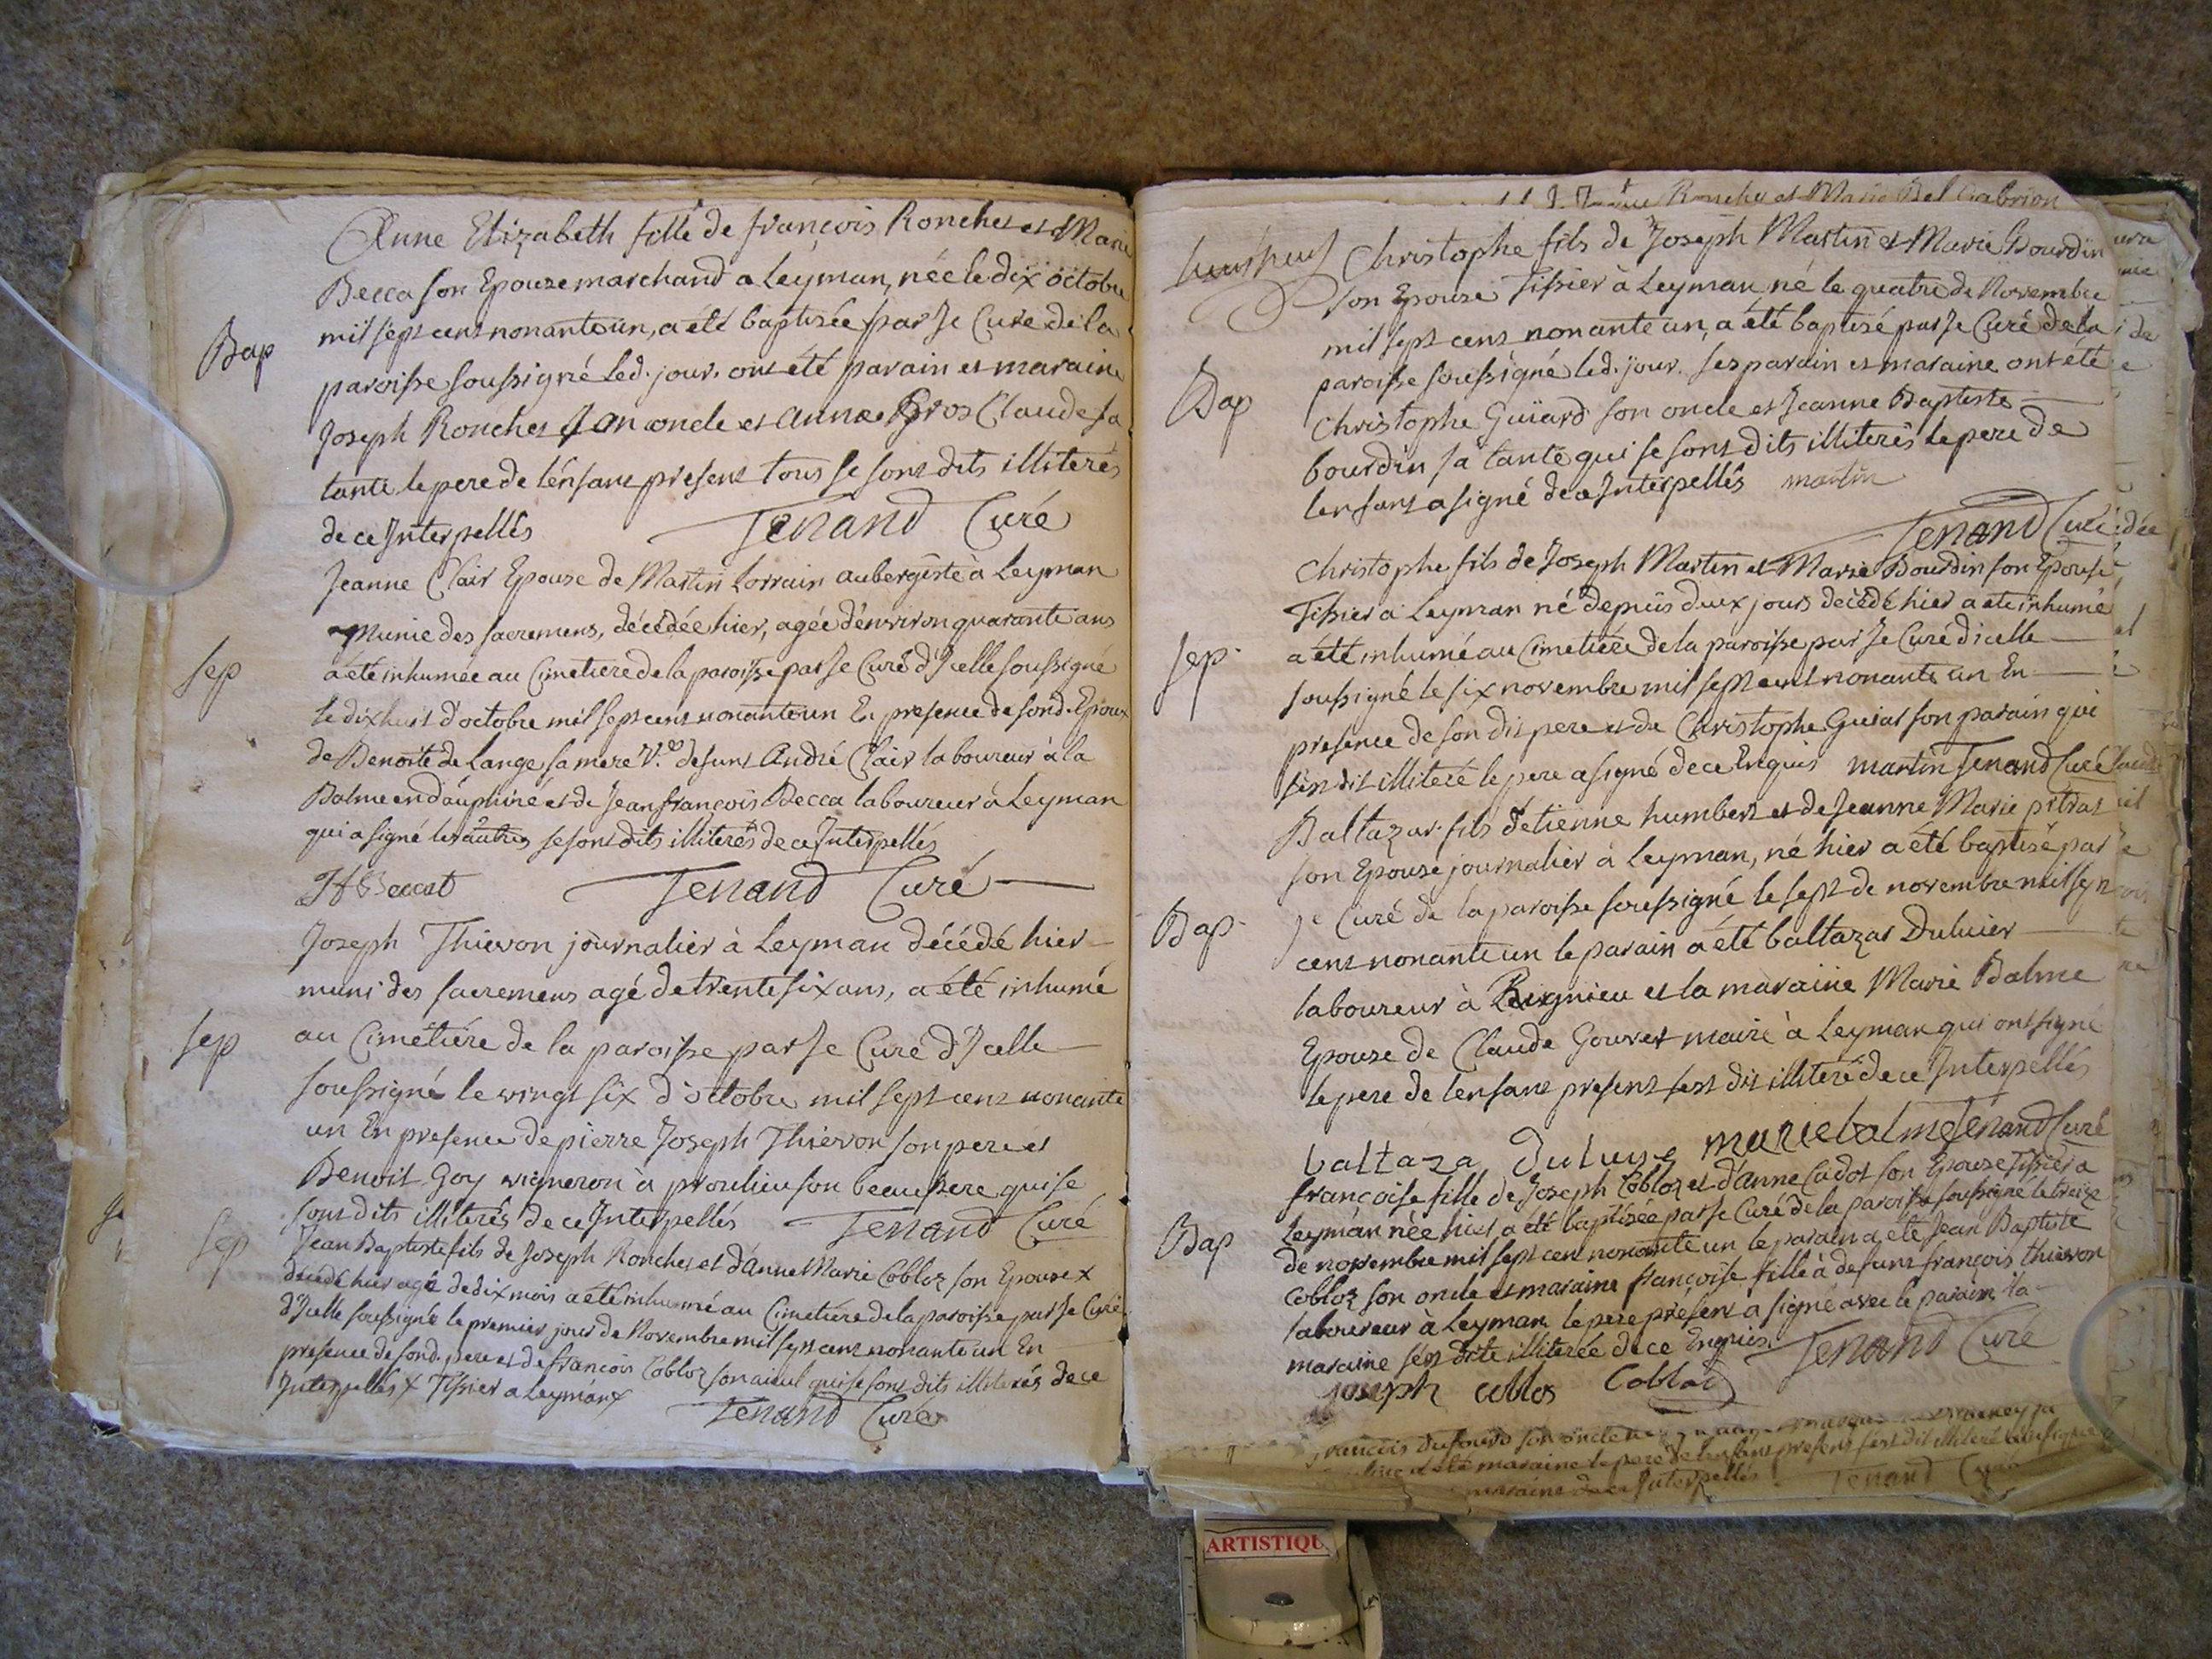 Anne Elizabeth fille de françois Ronchet et Marie
Becca son Epouze marchand a Leyman, née le dix octobre
mil sept cens nonante un, a été baptisée par Je Curé de la
Bap
paroisse soussigné led. jour. ont été parain et maraine
Joseph Ronchet son oncle et anne Gros Claude sa
tante le pere de l'énfant present tous se sont dits illiterés
de ce Interpellés Tenand Curé
Jeanne Clair Epouse de Martin Lorrain aubergiste à Leyman
Munie des sacremens, décédée hier, agée d'environ quarante ans
Sep
a été inhumée au Cimetiere de la paroisse par Je Curé d'Icelle soussigné
le dixhuit d'octobre mil sept cens nonante un En presence de sond. Epoux
de Benoite de Lange sa mere V.e defunt André Clair laboureur à la
Balme en dauphiné et de Jean françois Becca laboureur à Leyman
qui a signé les autres se sont dits illiterés de ce Interpellés
Tenand Curé
Joseph Thievon journalier à Leyman décédé hier
muni des sacremens agé de trente six ans, a été inhumé
Sep
au Cimétiére de la paroisse par Je Curé d'Icelle
soussigné le vingt six d'octobre mil sept cens nonante
un En presence de pierre Joseph Thievon son pere et
Benoit Goy vigneron à proulieu son beaufrere qui se
sont dits illiterés de ce Interpellés Tenand Curé
Sep
Jean Baptiste fils de Joseph Ronchet et d'Anne Marie Cobloz son Epouse x
décédé hier agé de dix mois a été inhumé au Cimetiere de la paroisse par Je Curé
d'Icelle soussigné le premier jour de Novembre mil sept cens nonante un En
presence de sond. pere et de françois Cobloz son aieul qui se sont dits illiterés de ce
Interpellés x Tissier a Leyman x
Tenand Curé
Ronchet et Marie Bel Gabrion
Christophe fils de Joseph Martin et Marie Bourdin
son Epouze Tissier à Leyman né le quatre de Novembre
mil sept cens nonante un, a été baptisé par Je Curé de la
Bap
paroisse soussigné led. jour. ses parain et maraine ont été
Christophe Guiard son oncle et Jeanne Baptiste
bourdin sa tante qui se sont dits illiterés le pere de
lenfant a signé de ce Interpellés martin
Tenand Curé
Christophe fils de Joseph Martin et Marie Bourdin son Epouse
Tissier a Leyman né depuis deux jours décédé hier a été inhumé
Sep.
a été inhumé au Cimetiére de la paroisse par Je Curé dicelle
soussigné le six novembre mil sept cens nonante un En
presence de son dit pere et de Christophe Guiat son parain qui
s'en dit illiteré le pere a signé de ce Enquis martin Tenand Curé
Baltazar fils d'etienne humbert et de Jeanne Marie pitras
son Epouze journalier à Leyman, né hier a été baptisé par
Bap.
Je Curé de la paroisse soussigné le sept de novembre mil sept
cens nonante un le parain a été baltazar Duluier
laboureur à Leignieu et la maraine Marie Balme
Epouze de Claude Gouvet maire à Leyman qui ont signé
le pere de lenfant present sest dit illiteré de ce Interpellés
baltaza marie balme Tenand Curé
françoise fille de Joseph Cobloz et d'Anne Cadot son Epouze Tissier a
Leyman née hier a été baptisée par Je Curé de la paroisse soussigné le treize
Bap
de novembre mil sept cens nonante un le parain a été Jean Baptiste
Cobloz son oncle et maraine françoise fille à defunt françois thievon
laboureur à Leyman le pere présent a signé avec le parain la
maraine s'est dite illiterée de ce Enquis. Tenand Curé
joseph coblos Cobloz
son oncle
maraine le pere de lenfant present sest dit illiteré
maraine de ce Interpellés Tenand Curé
ARTISTIQU